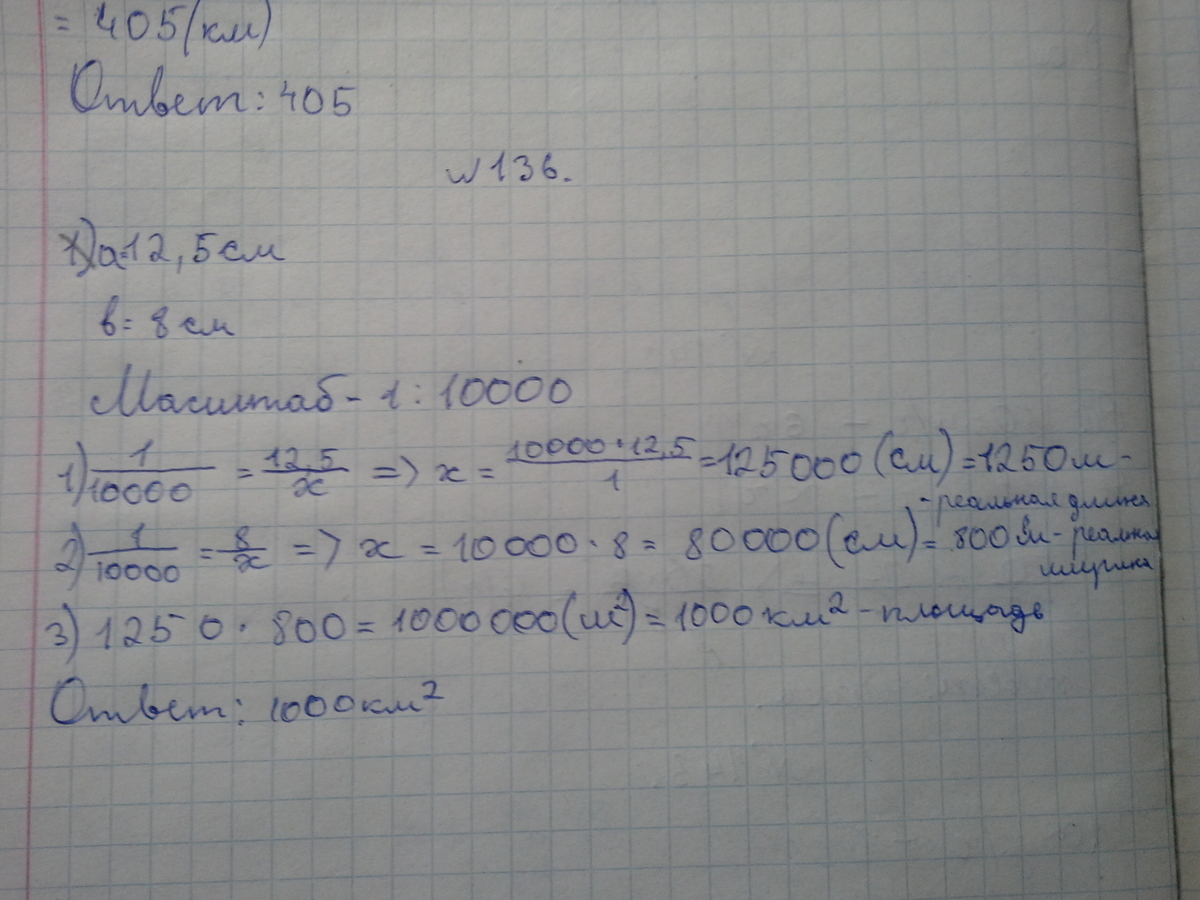 = 405(км)
Ответ: 405
№136.
1) a=12,5см
в= 8см
Масштаб - 1 : 10000
1) 1/10000 = 12,5/x => x = 10000·12,5/1 = 125000 (см) = 1250м -
- реальная длина
2) 1/10000 = 8/x => x = 10000·8 = 80000(см) = 800м - реальная
ширина
3) 1250·800 = 1000000(м²) = 1000км² - площадь
Ответ: 1000км²